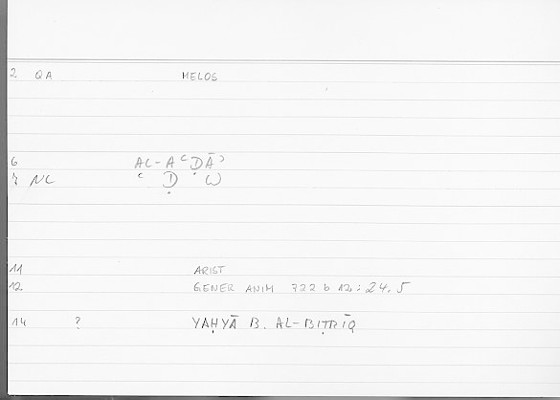 2 QA MELOS
6 AL-AʿḌĀʾ
7 NC ʿ Ḍ W
11 ARIST
12 GENER ANIM 722 b 12; 24.5
14 ? YAḤYĀ B. AL-BIṬRĪQ